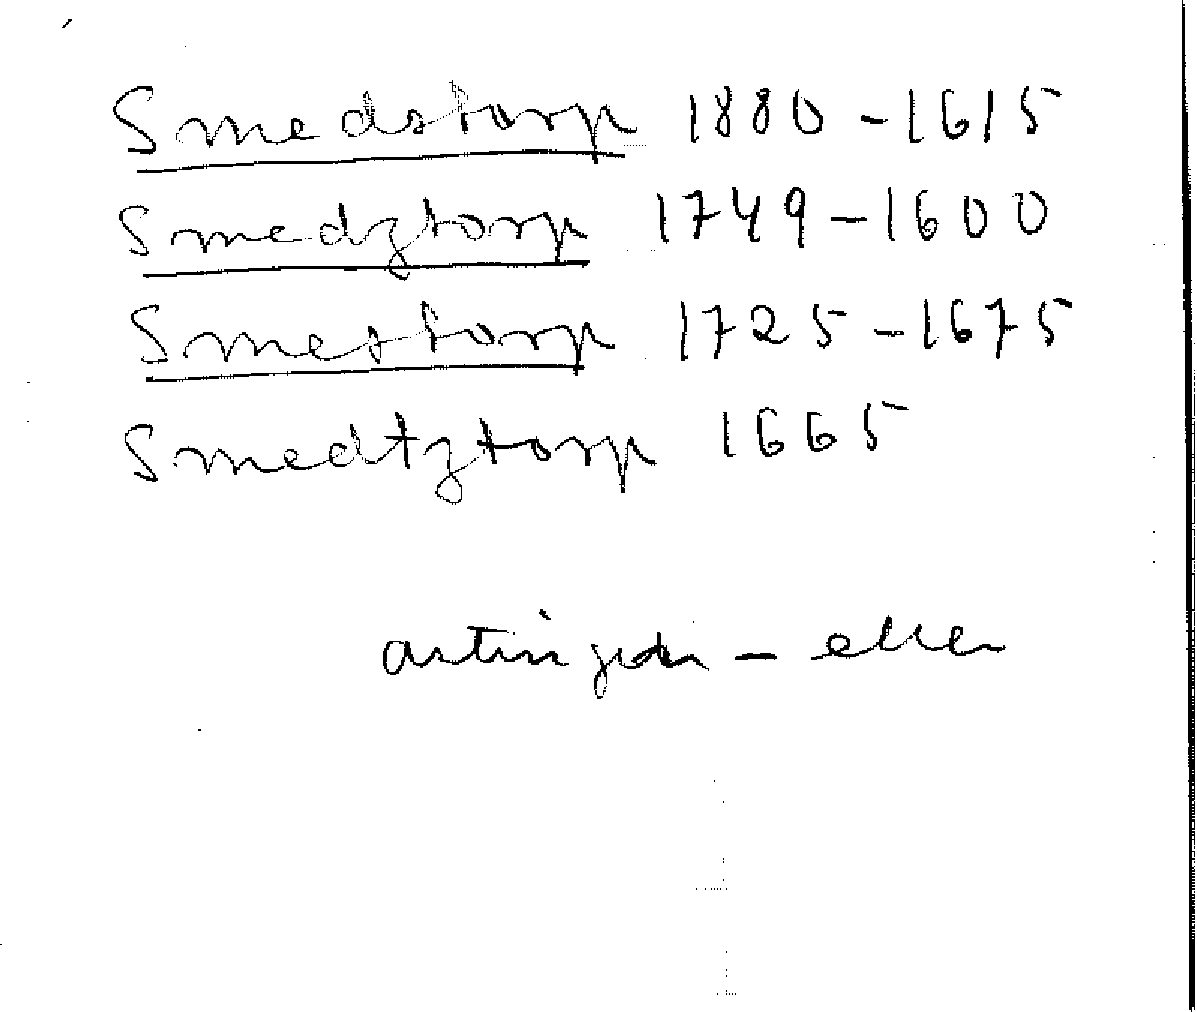 Smedstorp 1880-1615
Smedztorp 1749-1600
Smestorp 1725-1675
Smedtztorp 1665